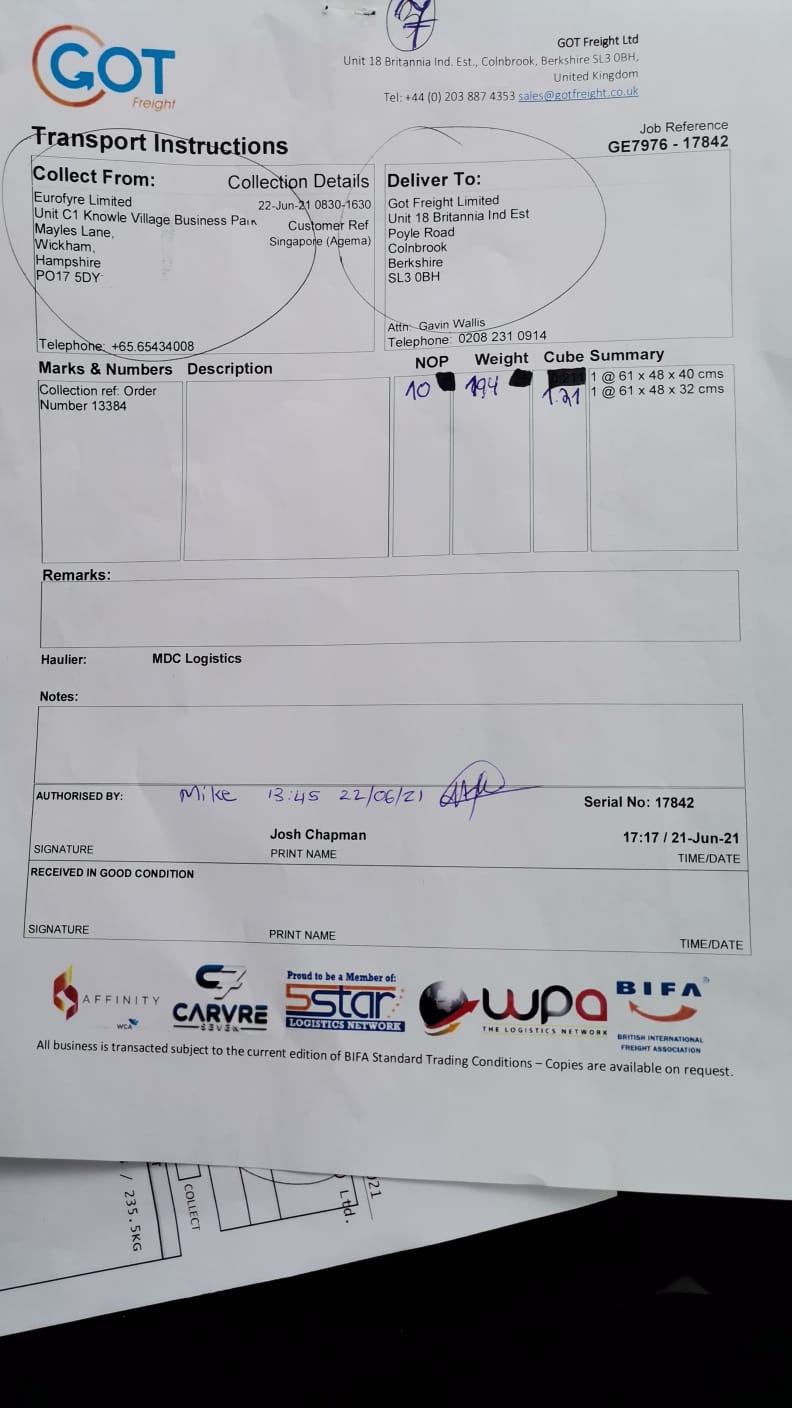 7
GOT
Freight
GOT Freight Ltd
Unit 18 Britannia Ind. Est., Colnbrook, Berkshire SL3 0BH,
United Kingdom
Tel: +44 (0) 203 887 4353 sales@gotfreight.co.uk
Transport Instructions
Job Reference
GE7976 - 17842
Collect From:
Collection Details
Eurofyre Limited
22-Jun-21 0830-1630
Unit C1 Knowle Village Business Park
Customer Ref
Mayles Lane,
Singapore (Agema)
Wickham,
Hampshire
PO17 5DY
Telephone: +65.65434008
Deliver To:
Got Freight Limited
Unit 18 Britannia Ind Est
Poyle Road
Colnbrook
Berkshire
SL3 0BH
Attn: Gavin Wallis
Telephone: 0208 231 0914
Marks & Numbers Description NOP Weight Cube Summary
Collection ref: Order
Number 13384
10 194 1.21
1 @ 61 x 48 x 40 cms
1 @ 61 x 48 x 32 cms
Remarks:
Haulier: MDC Logistics
Notes:
AUTHORISED BY: Mike 13:45 22/06/21
Serial No: 17842
Josh Chapman 17:17 / 21-Jun-21
SIGNATURE PRINT NAME TIME/DATE
RECEIVED IN GOOD CONDITION
SIGNATURE PRINT NAME TIME/DATE
AFFINITY
WCA
CARVRE
SEVEN
Proud to be a Member of:
5star
LOGISTICS NETWORK
wpa
THE LOGISTICS NETWORK
BIFA
BRITISH INTERNATIONAL
FREIGHT ASSOCIATION
All business is transacted subject to the current edition of BIFA Standard Trading Conditions – Copies are available on request.
/ 235.5KG
COLLECT
Ltd.
21